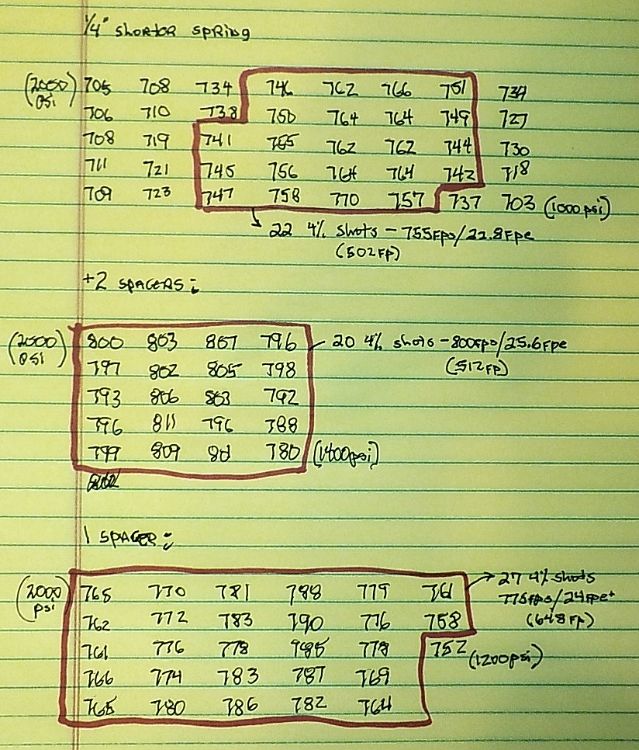 1/4" shorter spring
(2000 psi) 705 708 734 746 762 766 751 734
706 710 738 750 764 764 749 727
708 719 741 755 762 762 744 730
711 721 745 756 764 764 742 718
709 723 747 758 770 757 737 703 (1000 psi)
22 4% shots - 755fps/22.8fpe
(502fp)
+2 spacers:
(2000 psi) 800 803 807 796 20 4% shots - 800fps/25.6fpe
797 802 805 798 (512fp)
793 806 803 792
796 811 796 788
799 809 801 780 (1400psi)
1 spacer:
(2000 psi) 765 770 781 788 779 761 27 4% shots
762 772 783 790 776 758 775fps/24fpe+
(648fp)
761 776 778 785 778 752 (1200psi)
766 774 783 787 769
765 780 786 782 764